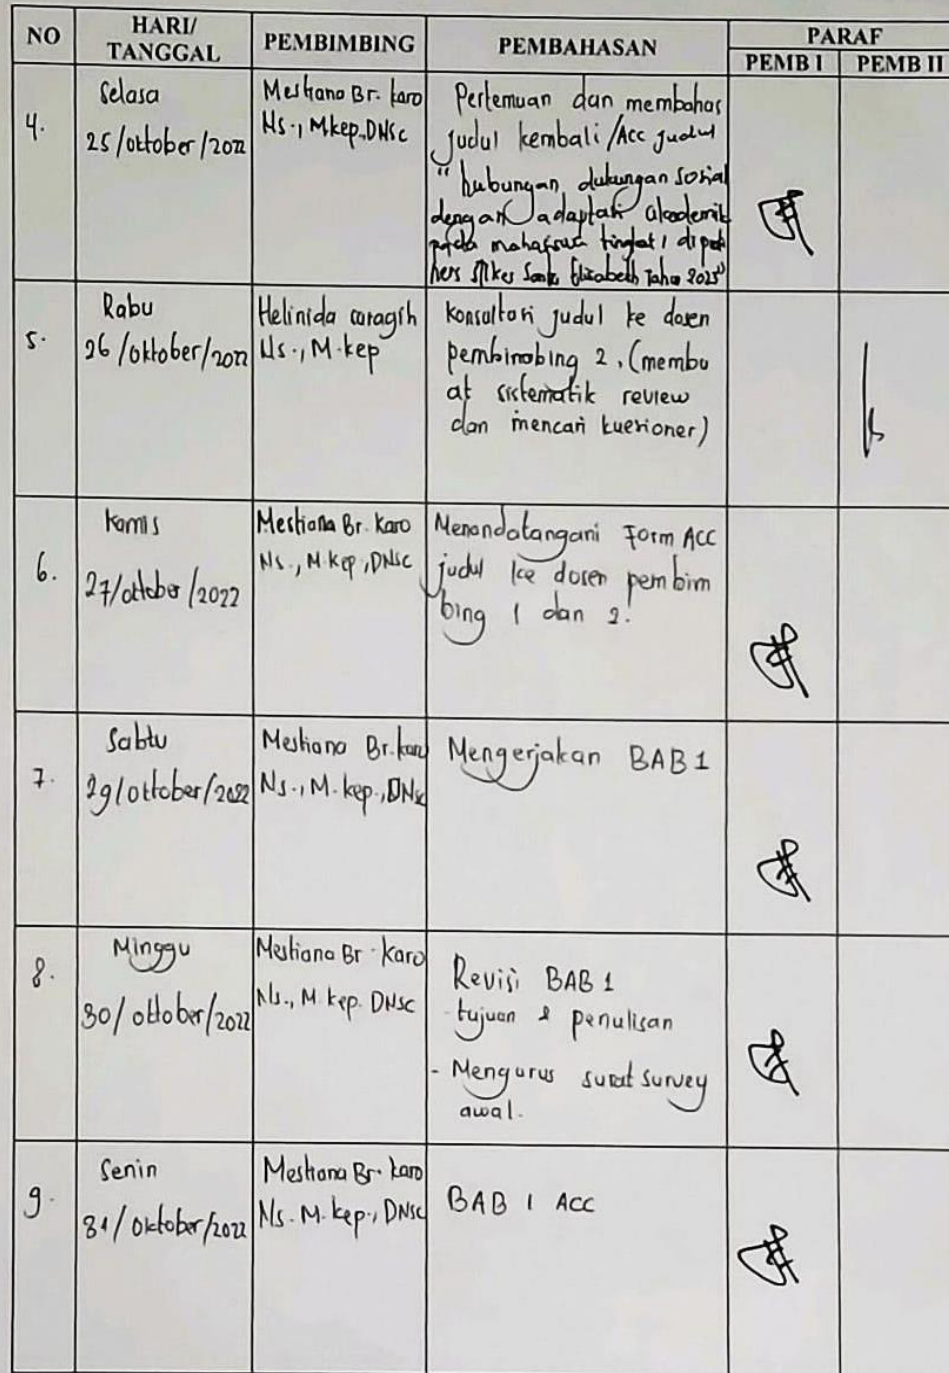 NO HARI/ TANGGAL PEMBIMBING PEMBAHASAN PARAF
PEMB I PEMB II
4.
Selasa
25/oktober/2022
Mestiana Br. Karo
Ns., Mkep.DNSc
Pertemuan dan membahas
judul kembali/Acc judul
"hubungan dukungan sosial
dengan adaptasi akademik
pada mahasiswa tingkat 1 di
ners Stikes Santa Elisabeth Tahun 2023"
5.
Rabu
26/oktober/2022
Helinida saragih
Ns., M.kep
Konsultasi judul ke dosen
pembimbing 2. (membu
at sistematik review
dan mencari kuesioner)
6.
Kamis
27/oktober/2022
Mestiana Br. Karo
Ns., M.kep, DNSc
Menandatangani Form ACC
judul ke dosen pembim
bing 1 dan 2.
7.
Sabtu
29/oktober/2022
Mestiana Br. karo
Ns., M.kep., DNSc
Mengerjakan BAB 1
8.
Minggu
30/oktober/2022
Mestiana Br. Karo
Ns., M.kep. DNSc
Revisi BAB 1
tujuan & penulisan
- Mengurus surat survey
awal.
9.
Senin
31/oktober/2022
Mestiana Br. karo
Ns. M. kep., DNSc
BAB 1 ACC